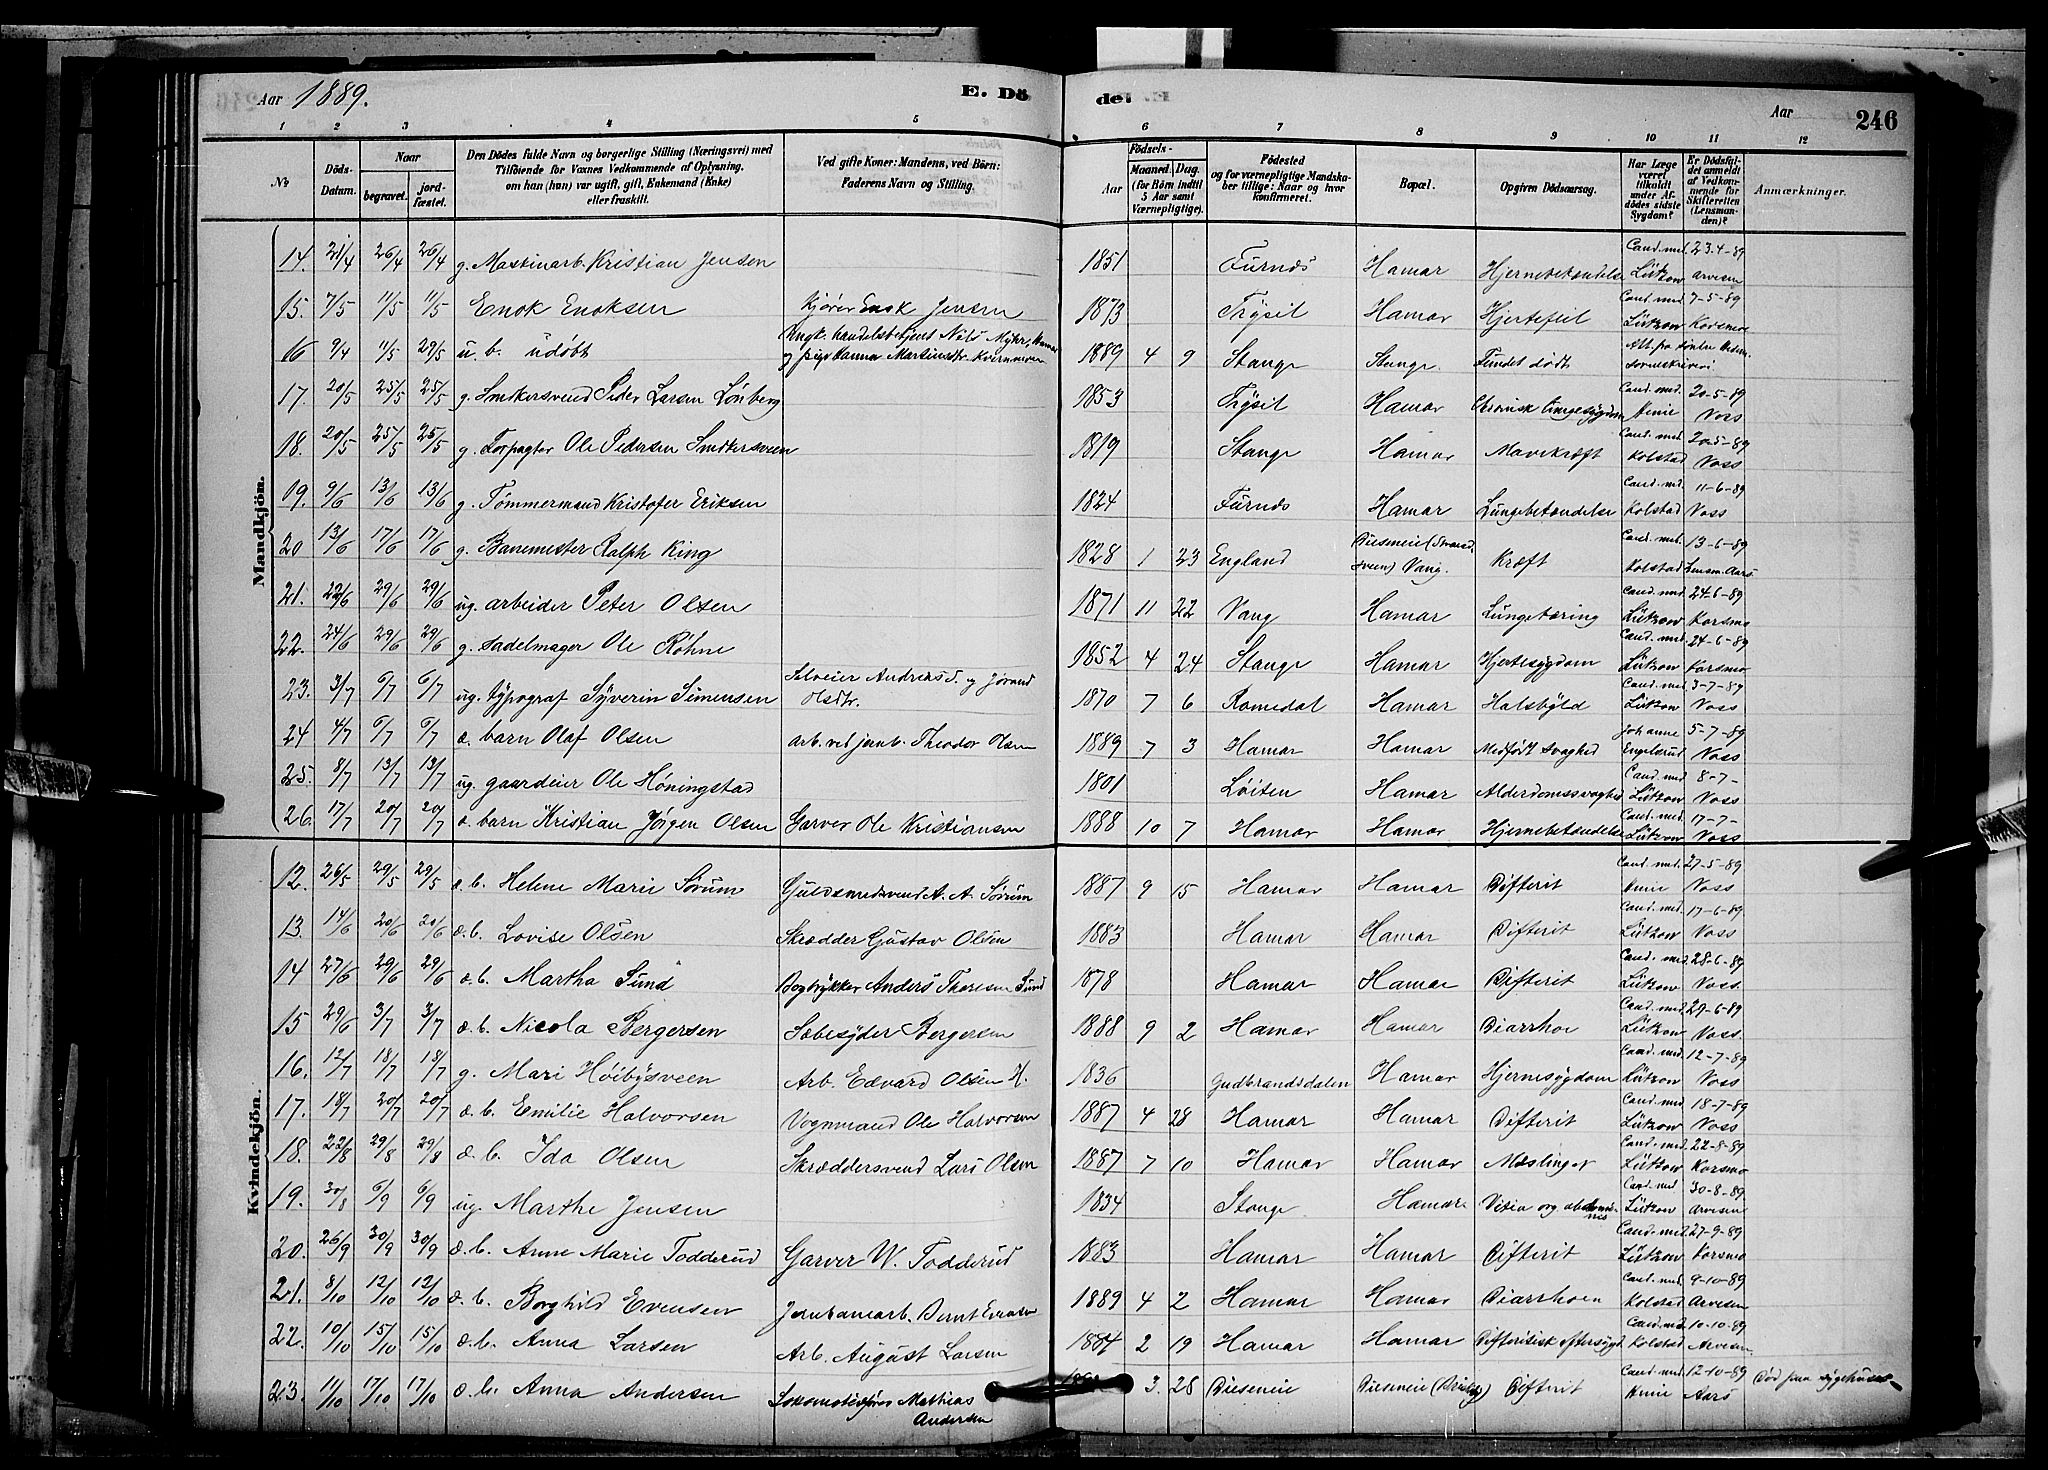 Aar 1889. E. Dö de. Aar 246
1 2 3 4 5 6 7 8 9 10 11 12
No Döds-Datum. Naar begravet. jord-fæstet. Den Dödes fulde Navn og borgerlige Stilling (Næringsvei) med Tilföiende for Voxnes Vedkommende af Oplysning, om han (hun) var ugift, gift, Enkemand (Enke) eller fraskilt. Ved gifte Koner: Mandens, ved Börn: Faderens Navn og Stilling. Födsels- Aar Maaned. Dag. (for Börn indtil 5 Aar samt Værnepligtige). Födested og for værnepligtige Mandskaber tillige: Naar og hvor konfirmeret. Bopæl. Opgiven Dödsaarsag. Har Læge været tilkaldt under Afdödes sidste Sygdom? Er Dödsfaldet anmeldt af Vedkommende for Skifteretten (Lensmanden)? Anmærkninger.
Mandkjön.
14. 21/4 26/4 26/4 g. Maskinarb. Kristian Jensen 1851 Furnds Hamar Hjernebetændelse Cand. med. Lützow 23-4-89 Arvesen
15. 7/5 11/5 11/5 Enok Enoksen Kjører Enok Jensen 1873 Trysil Hamar Hjertefeil Cand. med. Lützow 7-5-89 Korsmo
16 9/4 11/5 29/5 u. b. udøbt Ungk. handelsbetjent Nils Myhr, Hamar og pige Hanna Martinsdtr. Kvernmoen 1889 4 9 Stange Stange. Fundet dødt Att. fra søndre Hedm. Sorenskriveri
17. 20/5 25/5 25/5 g. Smedkersvend Peder Larsen Lønberg 1853 Trysil Hamar Chronisk Lungesygdom Cand. med 20-5-89 Voss
18. 20/5 25/5 25/5 g. Forpagter Ole Pedersen Smedkersveen 1819 Stange Hamar Mavekræft Cand. med Kolstad 20-5-89 Voss
19. 9/6 13/6 13/6 g. Tømmermand Kristofer Eriksen 1824 Furnds Hamar Lungebetændelse Cand. med Kolstad 11-6-89 Voss
20 13/6 17/6 17/6 g. Banemester Ralph King 1828 1 23 England Disemeie Vang. Kræft Cand. med. Kolstad 13-6-89 Lensm. Aars
21. 22/6 29/6 29/6 ug. arbeider Peter Olsen 1871 11 22 Vang Hamar Lungetæring Cand. med. Lützow 24-6-89 Korsmo
22. 24/6 29/6 29/6 g. Sadelmager Ole Røhne 1852 4 24 Stange Hamar Hjertesygdom Cand. med. Lützow 24-6-89 Korsmo
23. 3/7 6/7 6/7 ug. typograf Syverin Simensen Selveier Andreas S. og Jørand Olsdtr. 1870 7 6 Romedal Hamar Halsbyld Cand. med. Lützow 3-7-89 Voss
24 4/7 6/7 6/7 æ. barn Olaf Olsen Arb. ved jernb. Theodor Olsen 1889 7 3 Hamar Hamar Medfødt svaghed Johanne Engelsrud 5-7-89 Voss
25. 8/7 13/7 13/7 ug. gaardeier Ole Høningstad 1801 Løiten Hamar Alderdomssvaghed Cand. med Lützow 8-7- Voss
26. 17/7 20/7 20/7 æ. barn Kristian Jørgen Olsen Garver Ole Kristiansen 1888 10 7 Hamar Hamar Hjernebetændelse Cand. med. Lützow 17-7- Voss
Kvindekjön.
12. 26/5 29/5 29/5 æ. b. Helene Marie Sørum Guldsmedsvend A. A. Sørum 1887 9 15 Hamar Hamar Difterit Cand. med. 27-5-89 Voss
13. 14/6 20/6 20/6 æ. b. Lovise Olsen Skrædder Gustav Olsen 1883 Hamar Hamar Difterit Cand. med. Lützow 17-6-89 Voss
14 27/6 29/6 29/6 æ. b. Martha Sund Bogtrykker Anders Thoresen Sund 1878 Hamar Hamar Difterit Cand. med. Lützow 28-6-89 Voss
15 29/6 3/7 3/7 æ. b. Nicola Bergersen Sæbesyder Bergersen 1888 9 2 Hamar Hamar Diarrhoe Cand. med. Lützow 29-6-89 Voss.
16. 12/7 18/7 18/7 g. Mari Høibysveen Arb. Edvard Olsen H. 1836 Gudbrandsdalen Hamar Hjernesygdom Cand. med. Lützow 12-7-89 Voss
17. 18/7 20/7 20/7 æ. b. Emilie Halvorsen Vognmand Ole Halvorsen 1887 4 28 Hamar Hamar Difterit Cand. med. Lützow 18-7-89 Voss
18. 22/8 29/8 29/8 æ. b. Ida Olsen Skræddersvend Lars Olsen 1887 7 10 Hamar Hamar Mæslinger Cand. med. Lützow 22-8-89 Korsmo
19. 30/8 6/9 6/9 ug. Marthe Jensen 1834 Stange Hamar Vitia org. abdominis Cand. med Lützow 30-8-89 Arvesen
20. 26/9 30/9 30/9 æ. b. Anne Marie Todderud Garver W. Todderud 1883 Hamar Hamar Difterit Cand. med. Lützow 27-9-89 Korsmo
21. 8/10 12/10 12/10 æ. b. Borghild Evensen Jernbanearb. Bernt Evensen 1889 4 2 Hamar Hamar Diarrhoen Cand. med. Kolstad 9-10-89 Arvesen
22. 10/10 15/10 15/10 æ. b. Anna Larsen Arb. August Larsen 1884 2 19 Hamar Hamar Difteritisk eftersygd. Cand. med. Kolstad 10-10-89 Arvesen
23. 11/10 17/10 17/10 æ. b. Anna Andersen Lokomotivfører Mathias Andersen 3. 28 Disemeie Disemeie Difterit Cand. med. 12-10-89 Aars Død paa sygehuset